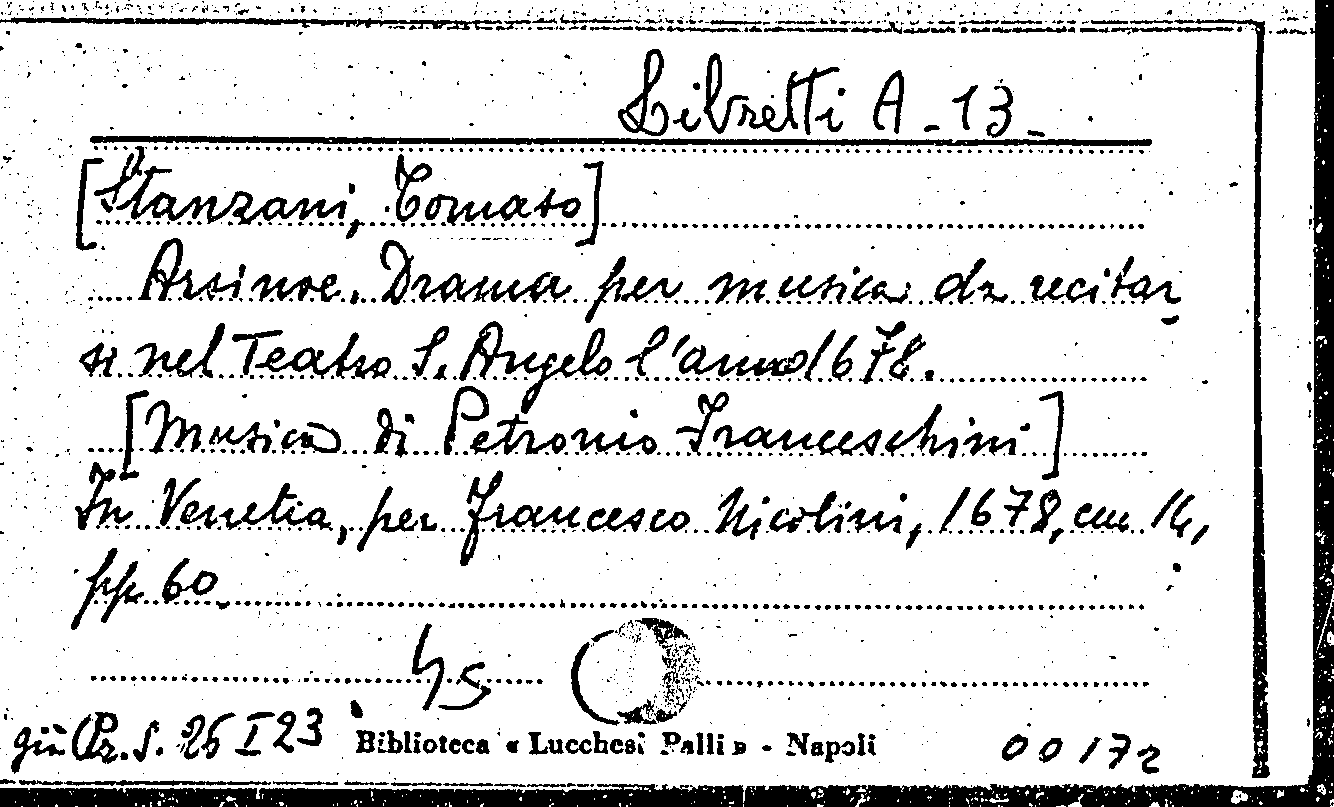 Libretti A-13-
[Stanzani, Tomaso]
Arsinoe. Drama per musica da recitar
si nel Teatro S. Angelo l'anno 1678.
[Musica di Petronio Franceschini]
In Venetia, per Francesco Nicolini, 1678, cm 14,
pp. 60.
già Pr. S. 25 I 23
Biblioteca « Lucchesi Palli » - Napoli
00172